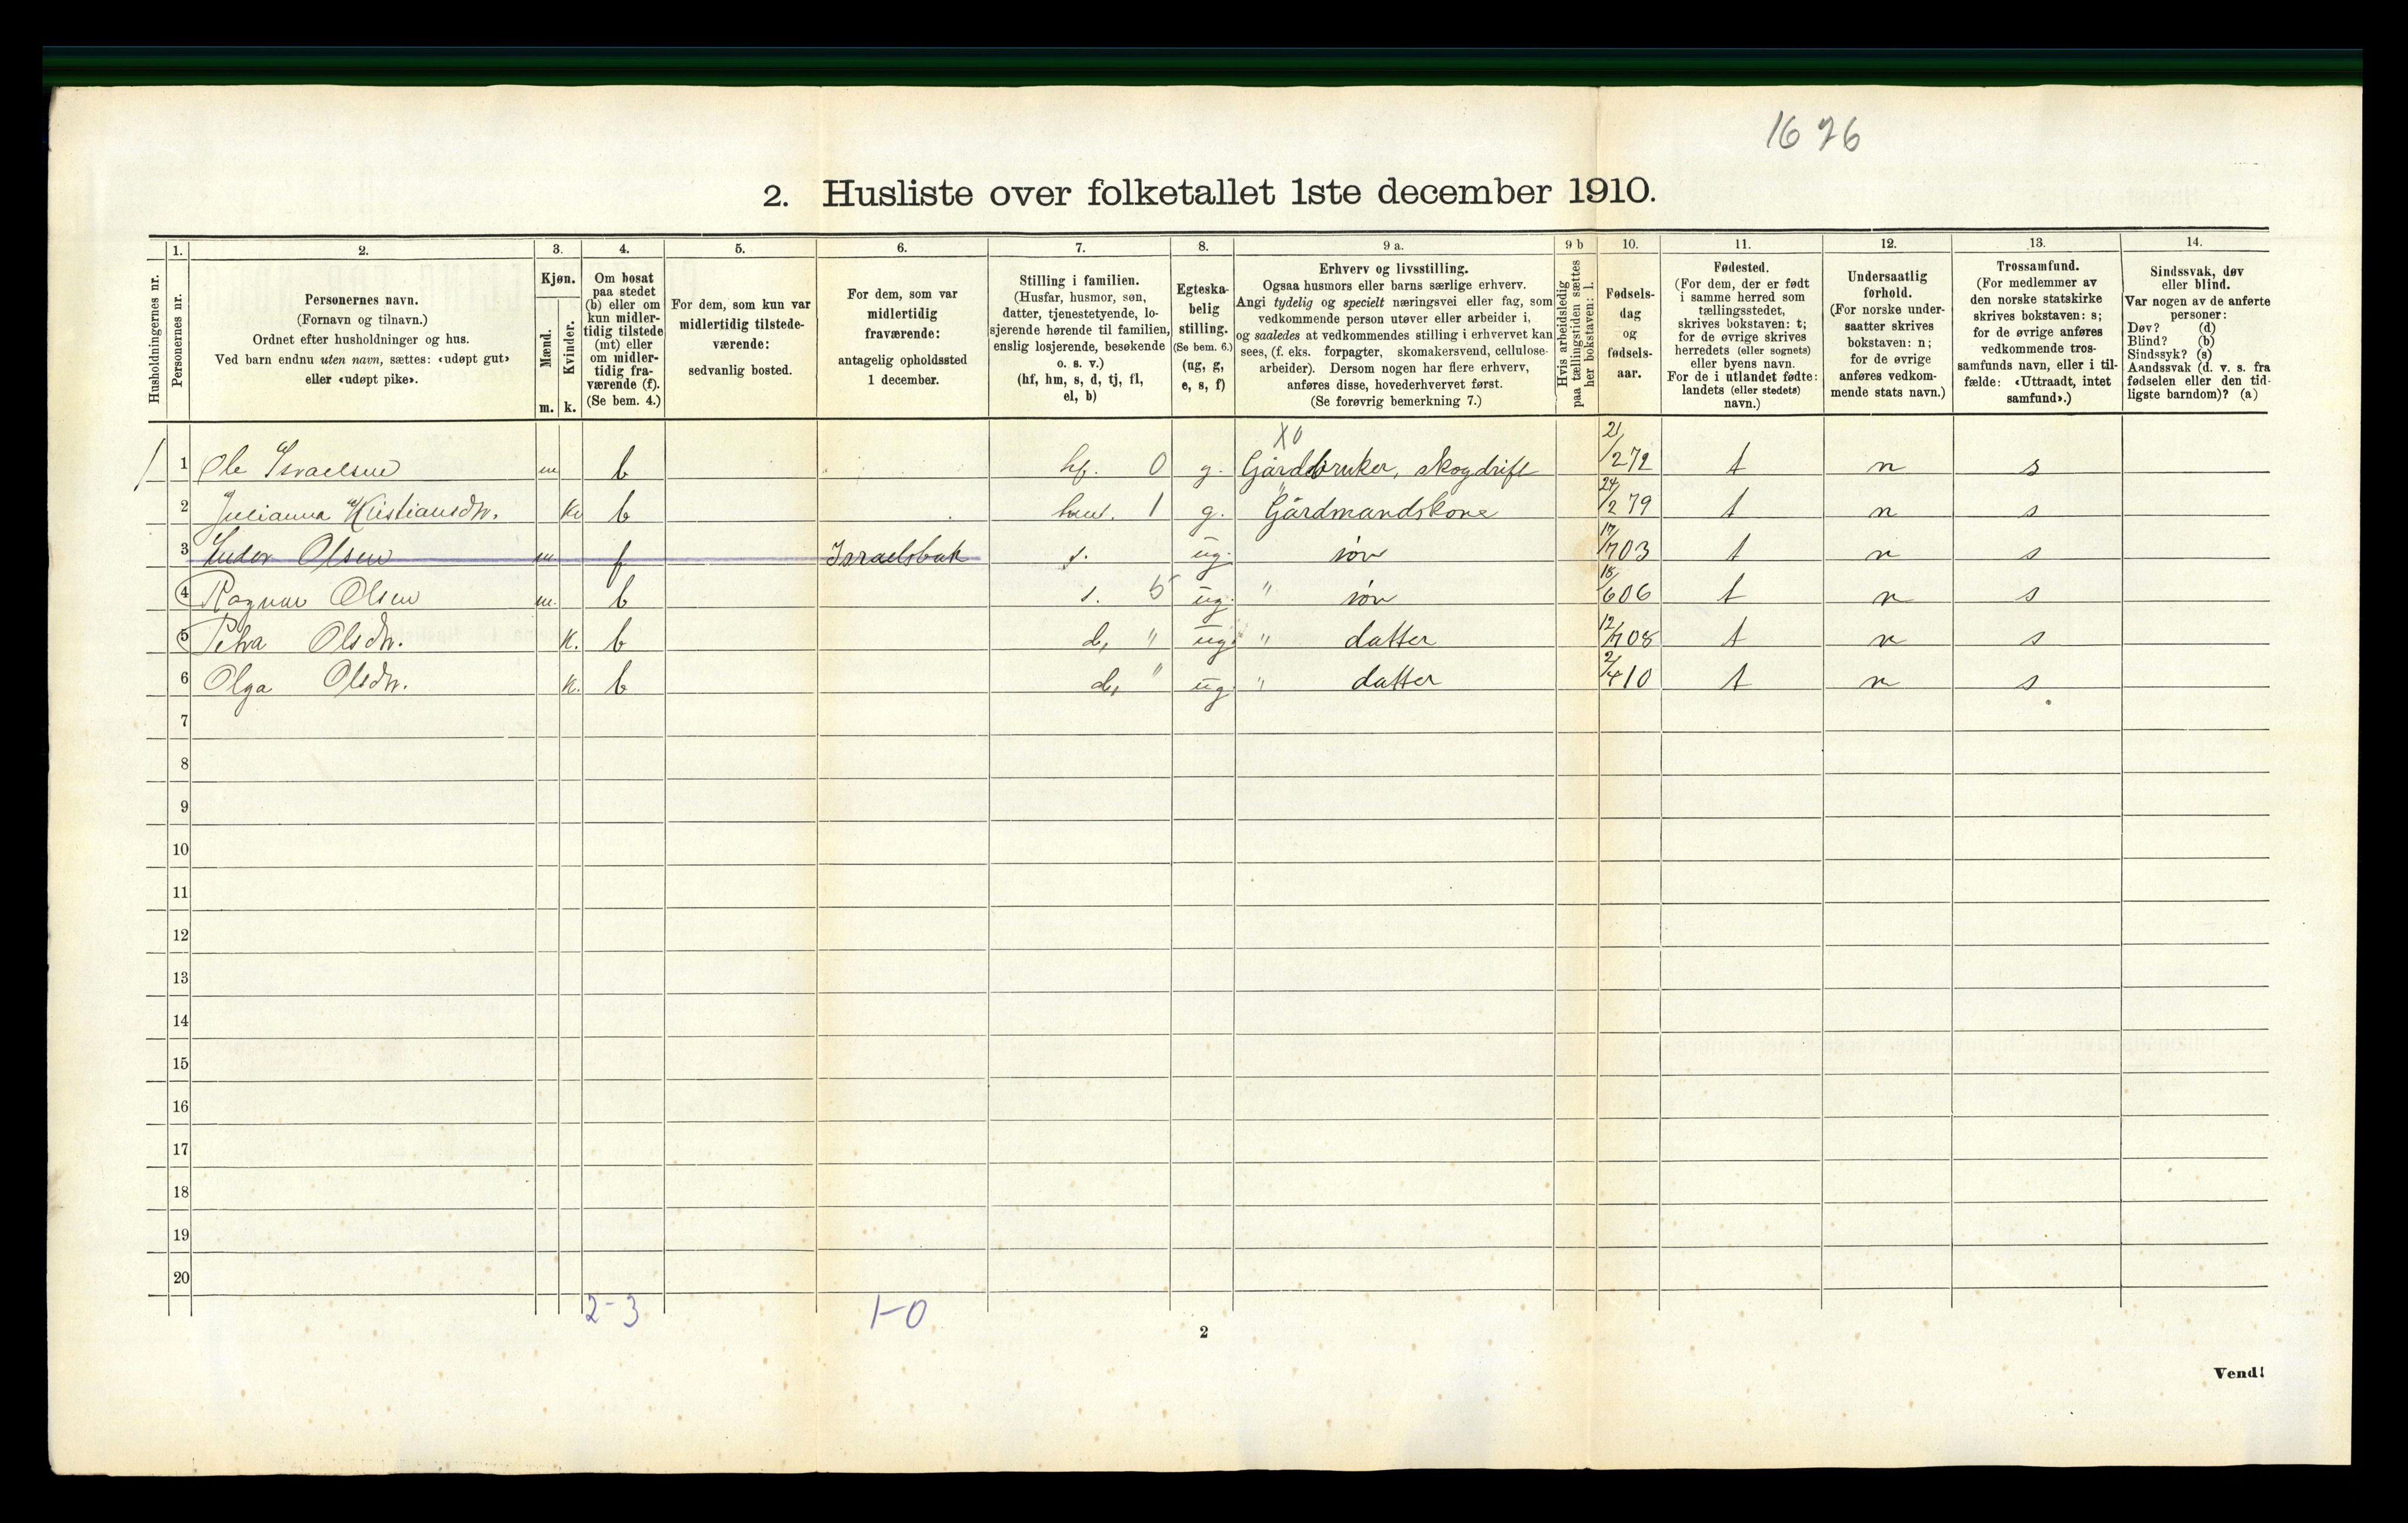 16 76
2. Husliste over folketallet 1ste december 1910.
Husholdningernes nr.
1. Personernes nr.
2. Personernes navn.
(Fornavn og tilnavn.)
Ordnet efter husholdninger og hus.
Ved barn endnu uten navn, sættes: «udøpt gut»
eller «udøpt pike».
3. Kjøn.
Mænd. Kvinder.
m. k.
4. Om bosat
paa stedet
(b) eller om
kun midler-
tidig tilstede
(mt) eller
om midler-
tidig fra-
værende (f).
(Se bem. 4.)
5. For dem, som kun var
midlertidig tilstede-
værende:
sedvanlig bosted.
6. For dem, som var
midlertidig
fraværende:
antagelig opholdssted
1 december.
7. Stilling i familien.
(Husfar, husmor, søn,
datter, tjenestetyende, lo-
sjerende hørende til familien,
enslig losjerende, besøkende
o. s. v.)
(hf, hm, s, d, tj, fl,
el, b)
8. Egteska-
belig
stilling.
(Se bem. 6.)
(ug, g,
e, s, f)
9 a. Erhverv og livsstilling.
Ogsaa husmors eller barns særlige erhverv.
Angi tydelig og specielt næringsvei eller fag, som
vedkommende person utøver eller arbeider i,
og saaledes at vedkommendes stilling i erhvervet kan
sees, (f. eks. forpagter, skomakersvend, cellulose-
arbeider). Dersom nogen har flere erhverv,
anføres disse, hovederhvervet først.
(Se forøvrig bemerkning 7.)
9 b Hvis arbeidsledig
paa tællingstiden sættes
her bokstaven: l.
10. Fødsels-
dag
og
fødsels-
aar.
11. Fødested.
(For dem, der er født
i samme herred som
tællingsstedet,
skrives bokstaven: t;
for de øvrige skrives
herredets (eller sognets)
eller byens navn.
For de i utlandet fødte:
landets (eller stedets)
navn.)
12. Undersaatlig
forhold.
(For norske under-
saatter skrives
bokstaven: n;
for de øvrige
anføres vedkom-
mende stats navn.)
13. Trossamfund.
(For medlemmer av
den norske statskirke
skrives bokstaven: s;
for de øvrige anføres
vedkommende tros-
samfunds navn, eller i til-
fælde: «Uttraadt, intet
samfund».)
14. Sindssvak, døv
eller blind.
Var nogen av de anførte
personer:
Døv? (d)
Blind? (b)
Sindssyk? (s)
Aandssvak (d. v. s. fra
fødselen eller den tid-
ligste barndom)? (a)
X0
1 Ole Israelsen m b hf. 0 g. Gårdbruker, skogdrift 21/2 72 t n s
2 Julianna Kristiansdtr. k b hm. 1 g. Gårdmandskone 24/2 79 t n s
3 Olsen m f Israelsbak s. ug. søn 17/7 03 t n s
4 Ragnar Olsen m. b s. 5 ug. " søn 18/6 06 t n s
5 Petra Olsdtr. k. b d, " ug. " datter 12/7 08 t n s
6 Olga Olsdtr. k. b d, " ug. " datter 2/4 10 t n s
7
8
9
10
11
12
13
14
15
16
17
18
19
20
2-3 1-0
2
Vend!